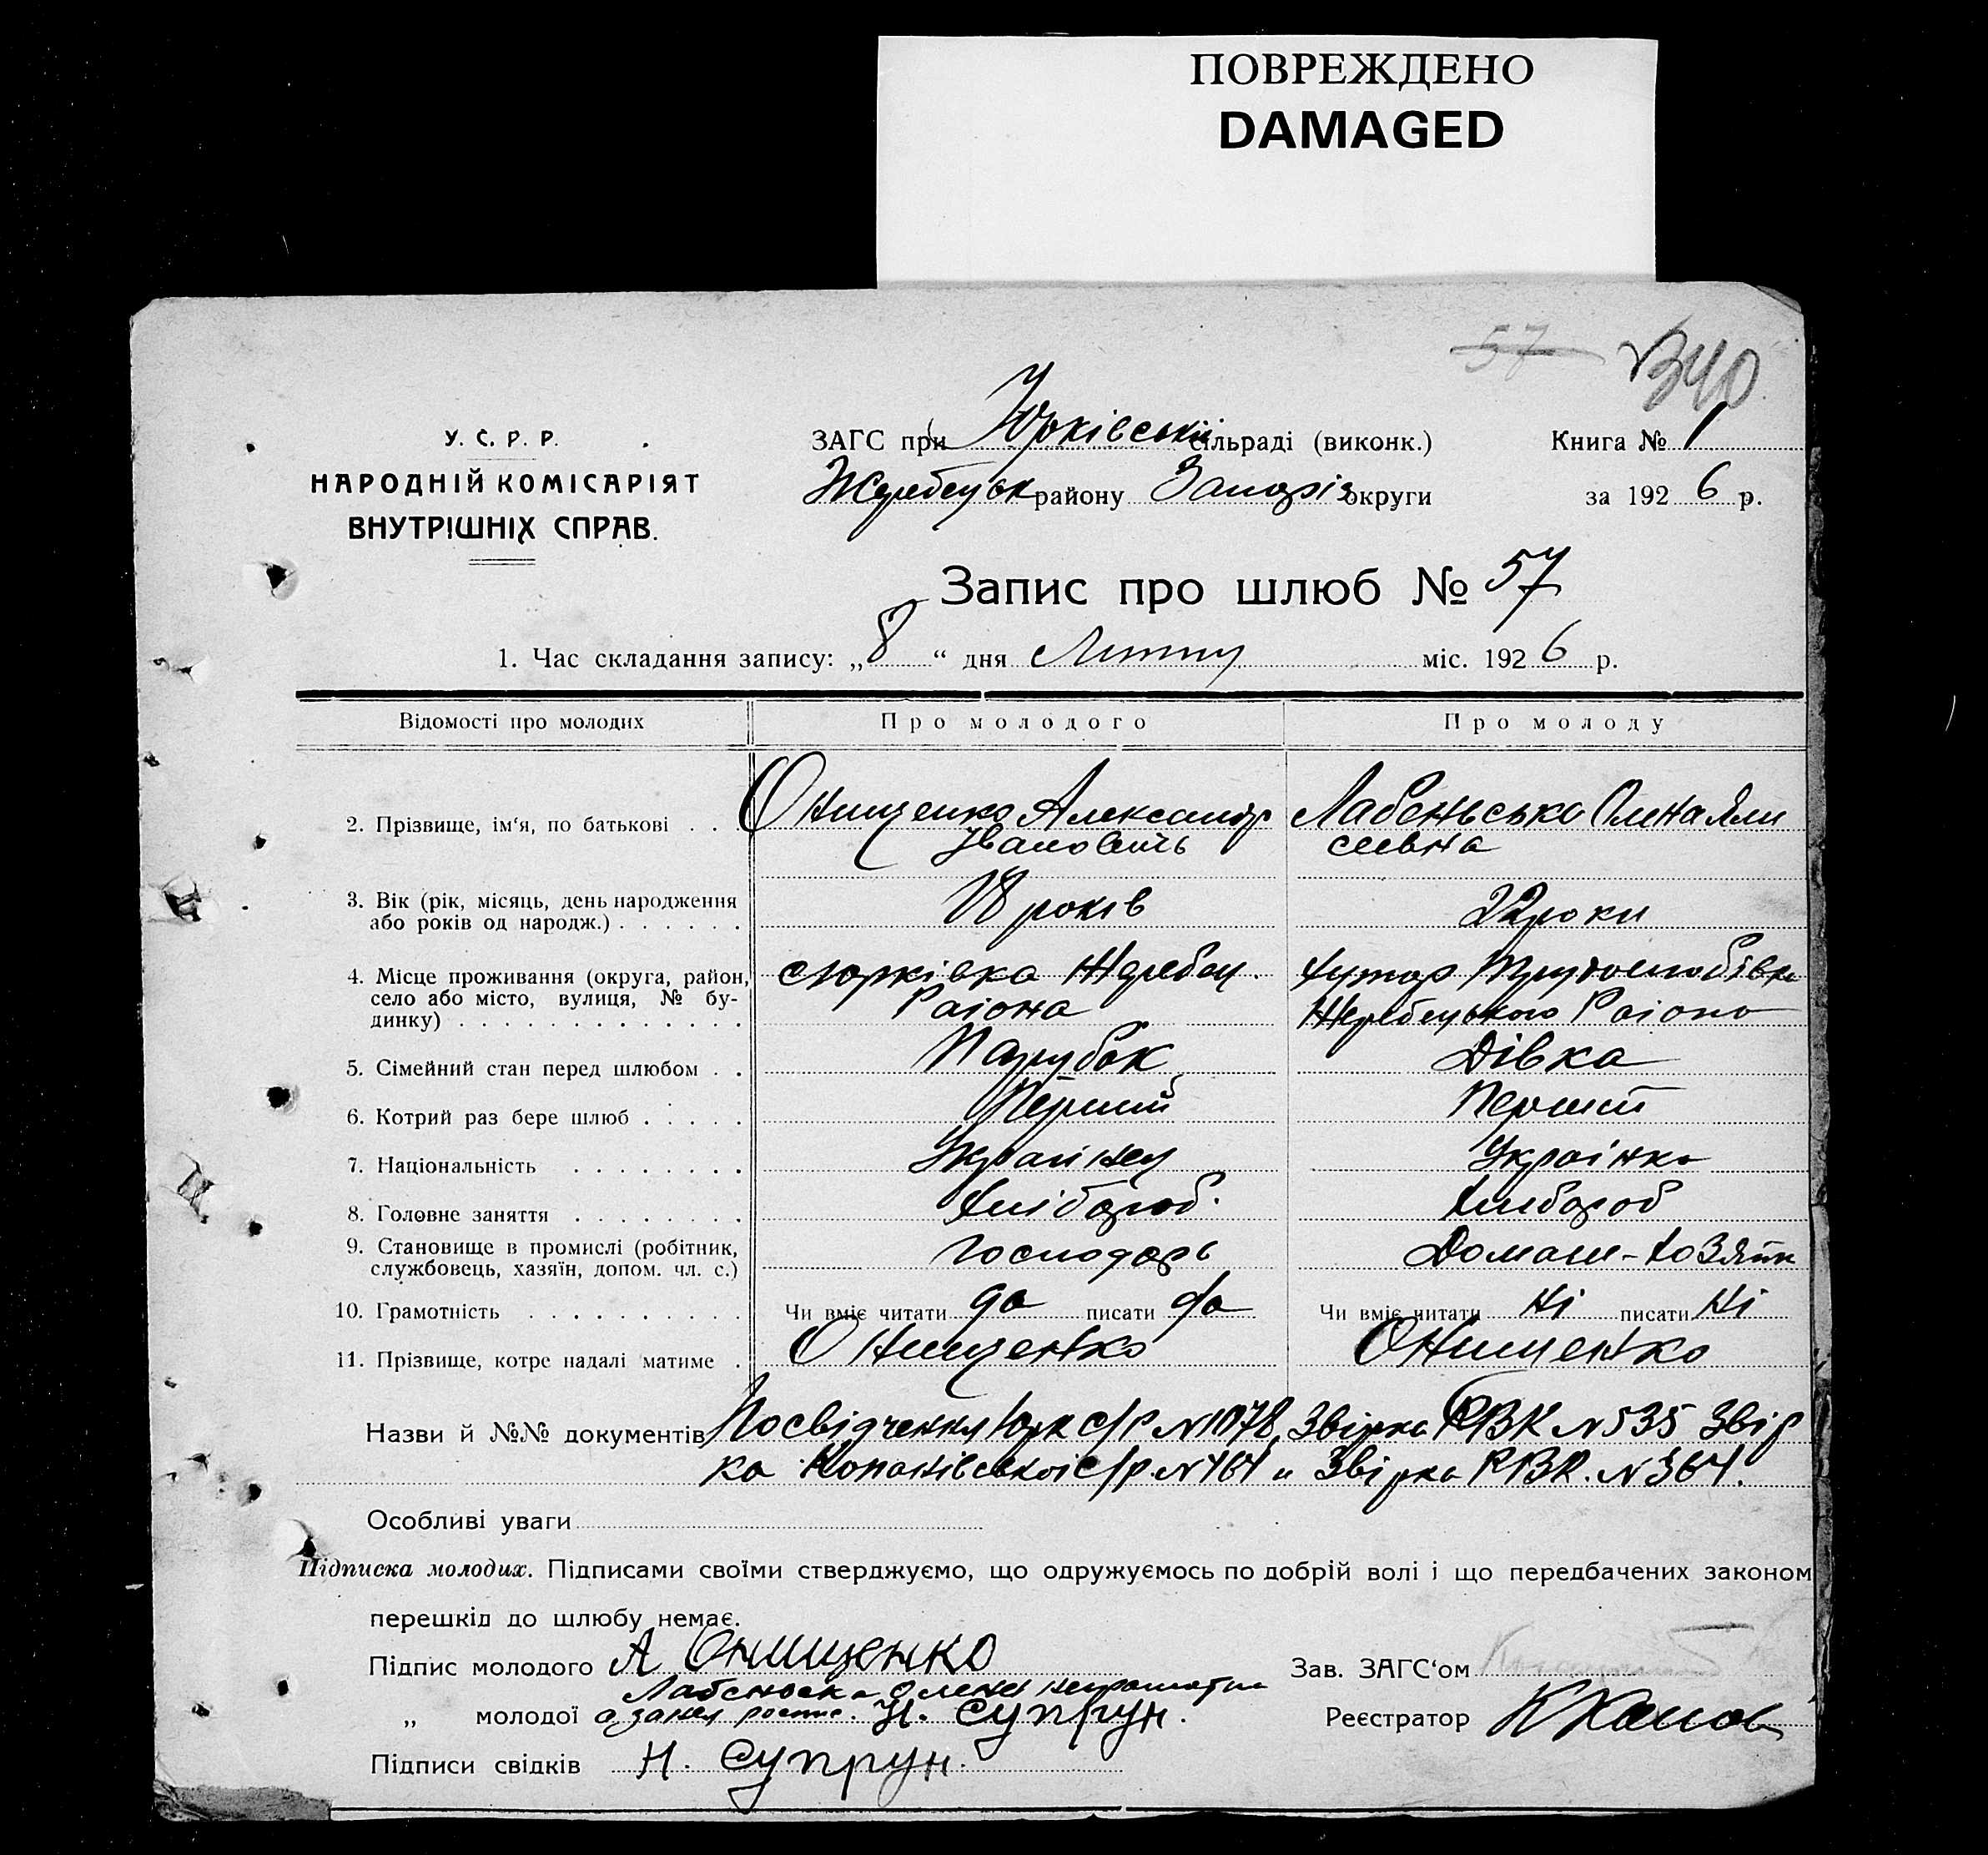 ПОВРЕЖДЕНО
DAMAGED
57 340
У. С. Р. Р.
НАРОДНІЙ КОМІСАРІЯТ
ВНУТРІШНІХ СПРАВ.
ЗАГС при Юрківській сільраді (виконк.) Книга № 1
Жеребецьк району Запоріз округи за 1926 р.
Запис про шлюб № 57
1. Час складання запису: „8“ дня міс. 1926 р.
Відомості про молодих Про молодого Про молоду
2. Прізвище, ім'я, по батькові . . Онищенко Александр Лабенська Олена Яли
Івановичь сеевна
3. Вік (рік, місяць, день народження
або років од народж.) . . . . . . 18 років 22 роки
4. Місце проживання (округа, район, с Юрківка Жеребец. хутор Трудолюбівка
село або місто, вулиця, № бу- Раіона Жеребецького Раіона
динку) . . . . . . . . . . . . .
5. Сімейний стан перед шлюбом . . Парубок Дівка
6. Котрий раз бере шлюб . . . . . Перший Перший
7. Національність . . . . . . . Украінец Украінка
8. Головне заняття . . . . . . . Хлібороб. Хлібороб
9. Становище в промислі (робітник,
службовець, хазяїн, допом. чл. с.) Господарь Домаш-хозяйк
10. Грамотність . . . . . . . . . . Чи вміє читати да писати да Чи вміє читати Ні писати Ні
11. Прізвище, котре надалі матиме . Онищенко Онищенко
Назви й №№ документів Посвідчення Юрк с/р N1078, Звірка РВК N535 Звір
ка Копанівської с/р. N 164 и Звірка РВК. N 364.
Особливі уваги
Підписка молодих. Підписами своїми стверджуємо, що одружуємось по добрій волі і що передбачених законом
перешкід до шлюбу немає.
Підпис молодого А Онищенко Зав. ЗАГС'ом
Лабенська Олена неграматна
„ молодої а занея роспис. Н. Супрун. Реєстратор
Підписи свідків Н. Супрун.